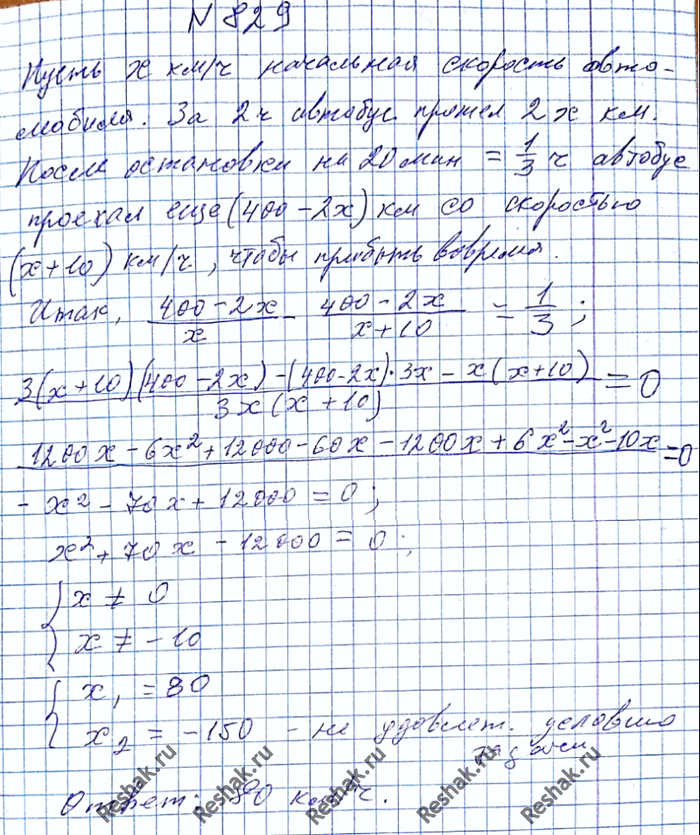 N 829
Пусть x км/ч начальная скорость авто-
мобиля. За 2ч автобус прошел 2x км.
После остановки на 20 мин = 1/3 ч автобус
проехал еще (400-2x) км со скоростью
(x+10) км/ч, чтобы прибыть вовремя.
Итак, (400-2x)/x - (400-2x)/(x+10) = 1/3;
(3(x+10)(400-2x)-(400-2x)·3x-x(x+10))/(3x(x+10)) = 0
1200x-6x²+12000-60x-1200x+6x²-x²-10x =0
-x²-70x+12000=0;
x²+70x-12000=0;
{ x ≠ 0
x ≠ -10
{ x₁ = 80
x₂ = -150 - не удовлет. условию
задачи
Ответ: 80 км/ч.
Reshak.ru Reshak.ru Reshak.ru Reshak.ru Reshak.ru